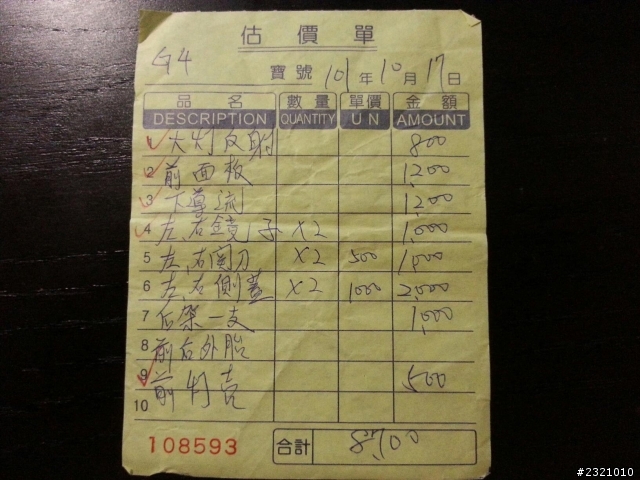 估價單
G4
寶號 101年10月17日
品名 數量 單價 金額
DESCRIPTION QUANTITY U N AMOUNT
1 大灯反射 800
2 前面板 1,200
3 下導流 1,200
4 左、右鏡子 x2 1,000
5 左、右開刀 x2 500 1,000
6 左、右側蓋 x2 1000 2,000
7 后架一支 1,000
8 前后外胎
9 前灯壳 500
10
108593 合計 8,700
#2321010